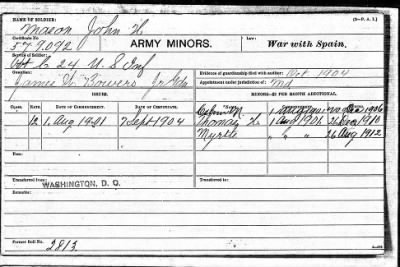 NAME OF SOLDIER: (3-D. A. I.)
Mason John H
Certificate No.
579,092 ARMY MINORS. Law: War with Spain.
Service of Soldier:
24 U. S. Inf
Guardian: Evidence of guardianship filed with auditor: Oct. 1904
James W. Bowers Jr Gdn Md
ISSUES. RECORD—$2 PER MONTH ADDITIONAL.
CLASS. DATE OF COMMENCEMENT. DATE OF CERTIFICATE.
1906
12 1. Aug 1901 7 Sept 1904 Thomas H. 1 Aug 1901 26 Dec 1910
Myrtle " " " 26 Aug 1912
Transferred from Transferred to
WASHINGTON, D. C.
Former Roll No.
2813